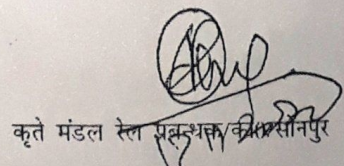 कृते मंडल रेल प्रबन्धक/का०/सोनपुर